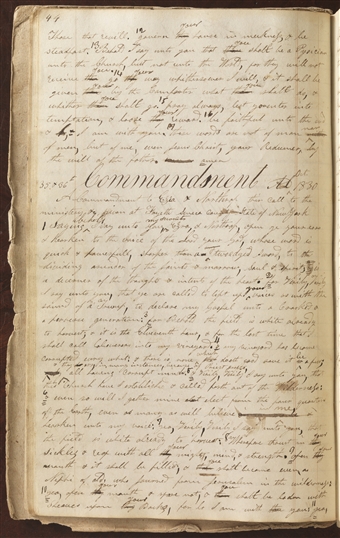 44
those that revile. govern your house in meekness, & be
steadfast. Behold I say unto you that you shall be a Physician
unto the Church, but not unto the World, for they will not
receive you go your way whithersoever I will, & it shall be
given you by the Comforter what you shall do, &
whither you shall go. pray always, lest you enter into
temptation, & loose your reward. be faithful unto the end
& lo I am with you. these words are not of man nor
of men, but of me, even Jesus Christ, your Redeemer, by
the will of the father. amen
Commandment AD 1830
A commandment to Ezra & Northrop their call to the
ministry &c given at Fayette Seneca State of New York
Saying Behold I say unto you my servants Ezra, & Northrop, open ye your ears
& hearken to the voice of the Lord your God, whose word is
quick & powerful, sharper than a two edged sword, to the
dividing asunder of the joints & marrow, soul & spirit, & is
a discerner of the thoughts & intents of the heart. for Verily, Verily
I say unto you, that ye are called to lift up your voices as with the
sound of a Trump, to declare my gospel unto a crooked &
a perverse generation, for behold the field is white already
to harvest, & it is the Eleventh hour, & for the last time that I
shall call labourers into my vineyard, & my vineyard has become
corrupted every whit, & there is none that doeth good save it be a few
& they err in many instances because of Priest crafts,
all having corrupt minds, & verily, verily I say unto you, that
this church have I established & called forth out of the wilderness:
& even so will I gather mine elect from the four quarters
of the Earth, even as many as will believe in me &
hearken unto my voice: yea, Verily, Verily I say unto you, that
the field is white already to harvest: Wherefore thrust in your
sickles & reap with all your might, mind, & strength. Open your
mouth & it shall be filled, & you shall become even as
Nephi of old, who journied from Jerusalem in the wilderness:
yea, open your mouth & spare not, & you shall be laden with
sheaves upon your backs, for lo I am with you: yea,